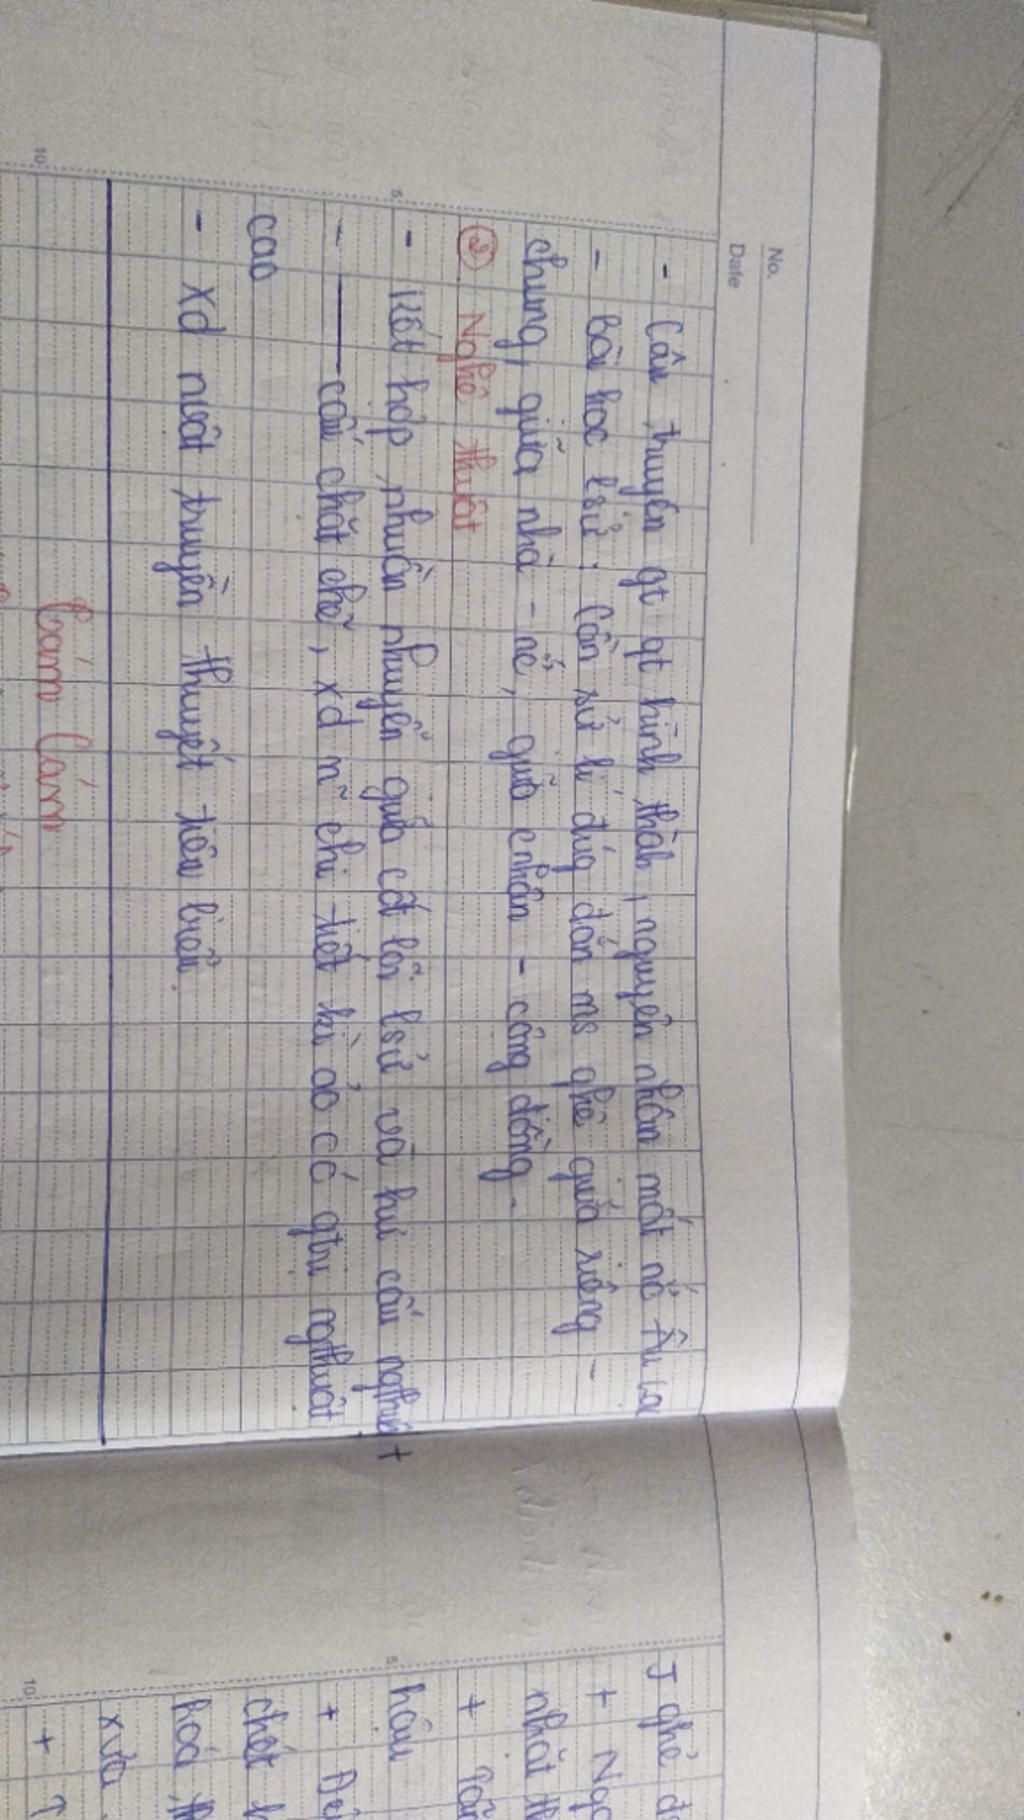 No.
Date
- Câu truyện gt qt hình thành, nguyên nhân mất nc Âu Lạc
- Bài học lsử: Cần xử lí đúg đắn mqh giữa riêng -
chung, giữa nhà - nc, giữa cnhân - cộng đồng.
② Nghệ thuật
5
- Kết hợp nhuần nhuyễn giữa cốt lõi lsử và hư cấu ngthuật
- cấu chặt chẽ, xd n~ chi tiết kì ảo có gtrị ngthuật
cao
- xd nvật truyền thuyết tiêu biểu.
10
Cám
+ Ngọ
nhất
+
5
hậu
+
chết
hoá
xưa
10
+